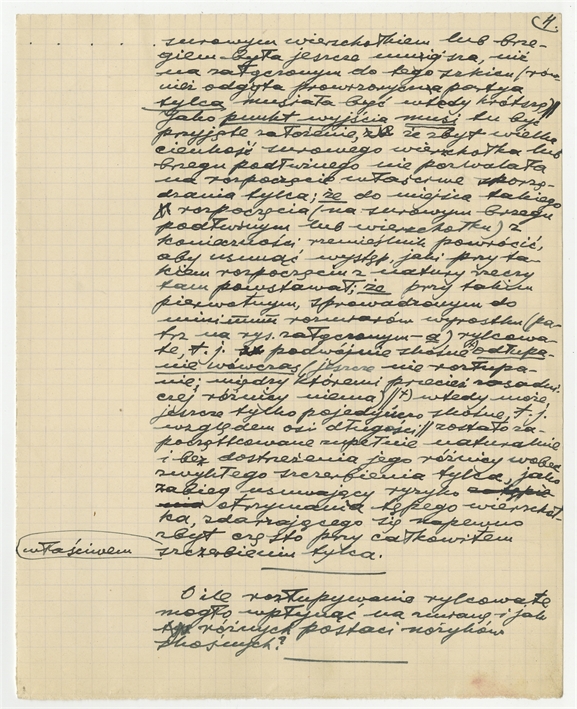 4.
surowym wierzchołkiem lub brze-
giem była jeszcze mniejsza, niż
na załączonym do tego szkicu (rów-
nież odgięta prowizoryczna partya
tylca musiała być wtedy krótszą)//
Jako punkt wyjścia musi tu być
przyjęte założenie, że zbyt wielka
cienkość surowego wierzchołka lub
brzegu podłużnego nie pozwalała
na rozpoczęcie właściwe sporzą-
dzania tylca; że do miejsca takiego
rozpoczęcia (na surowym brzegu
podłużnym lub wierzchołku) z
konieczności rzemieślnik powrócić,
aby usunąć występ, jaki przy ta-
kiem rozpoczęciu z natury rzeczy
tam powstawał; że przy takim
pierwotnym, sprowadzonym do
minimum rozmiarów wyrostku (pa-
trz na rys. załączonym - a) rylcowa-
te, t. j. podwójnie skośne odłupa-
nie wówczas (jeszcze nie rozłupa-
nie; między któremi przecież zasadni-
czej różnicy niema)//+) wtedy może
jeszcze tylko pojedyńczo skośne, t. j.
względem osi długości// zostało za-
początkowane zupełnie naturalnie
i bez dostrzeżenia jego różnicy wobec
zwykłego szczerbienia tylca, jako
zabieg usuwający ryzyko
otrzymania tępego wierzchoł-
ka, zdarzającego się napewno
zbyt często przy całkowitem
właściwem szczerbieniu tylca.
O ile rozłupywanie rylcowate
mogło wpłynąć na zmianę i jak
różnych postaci nożyków
skośnych?